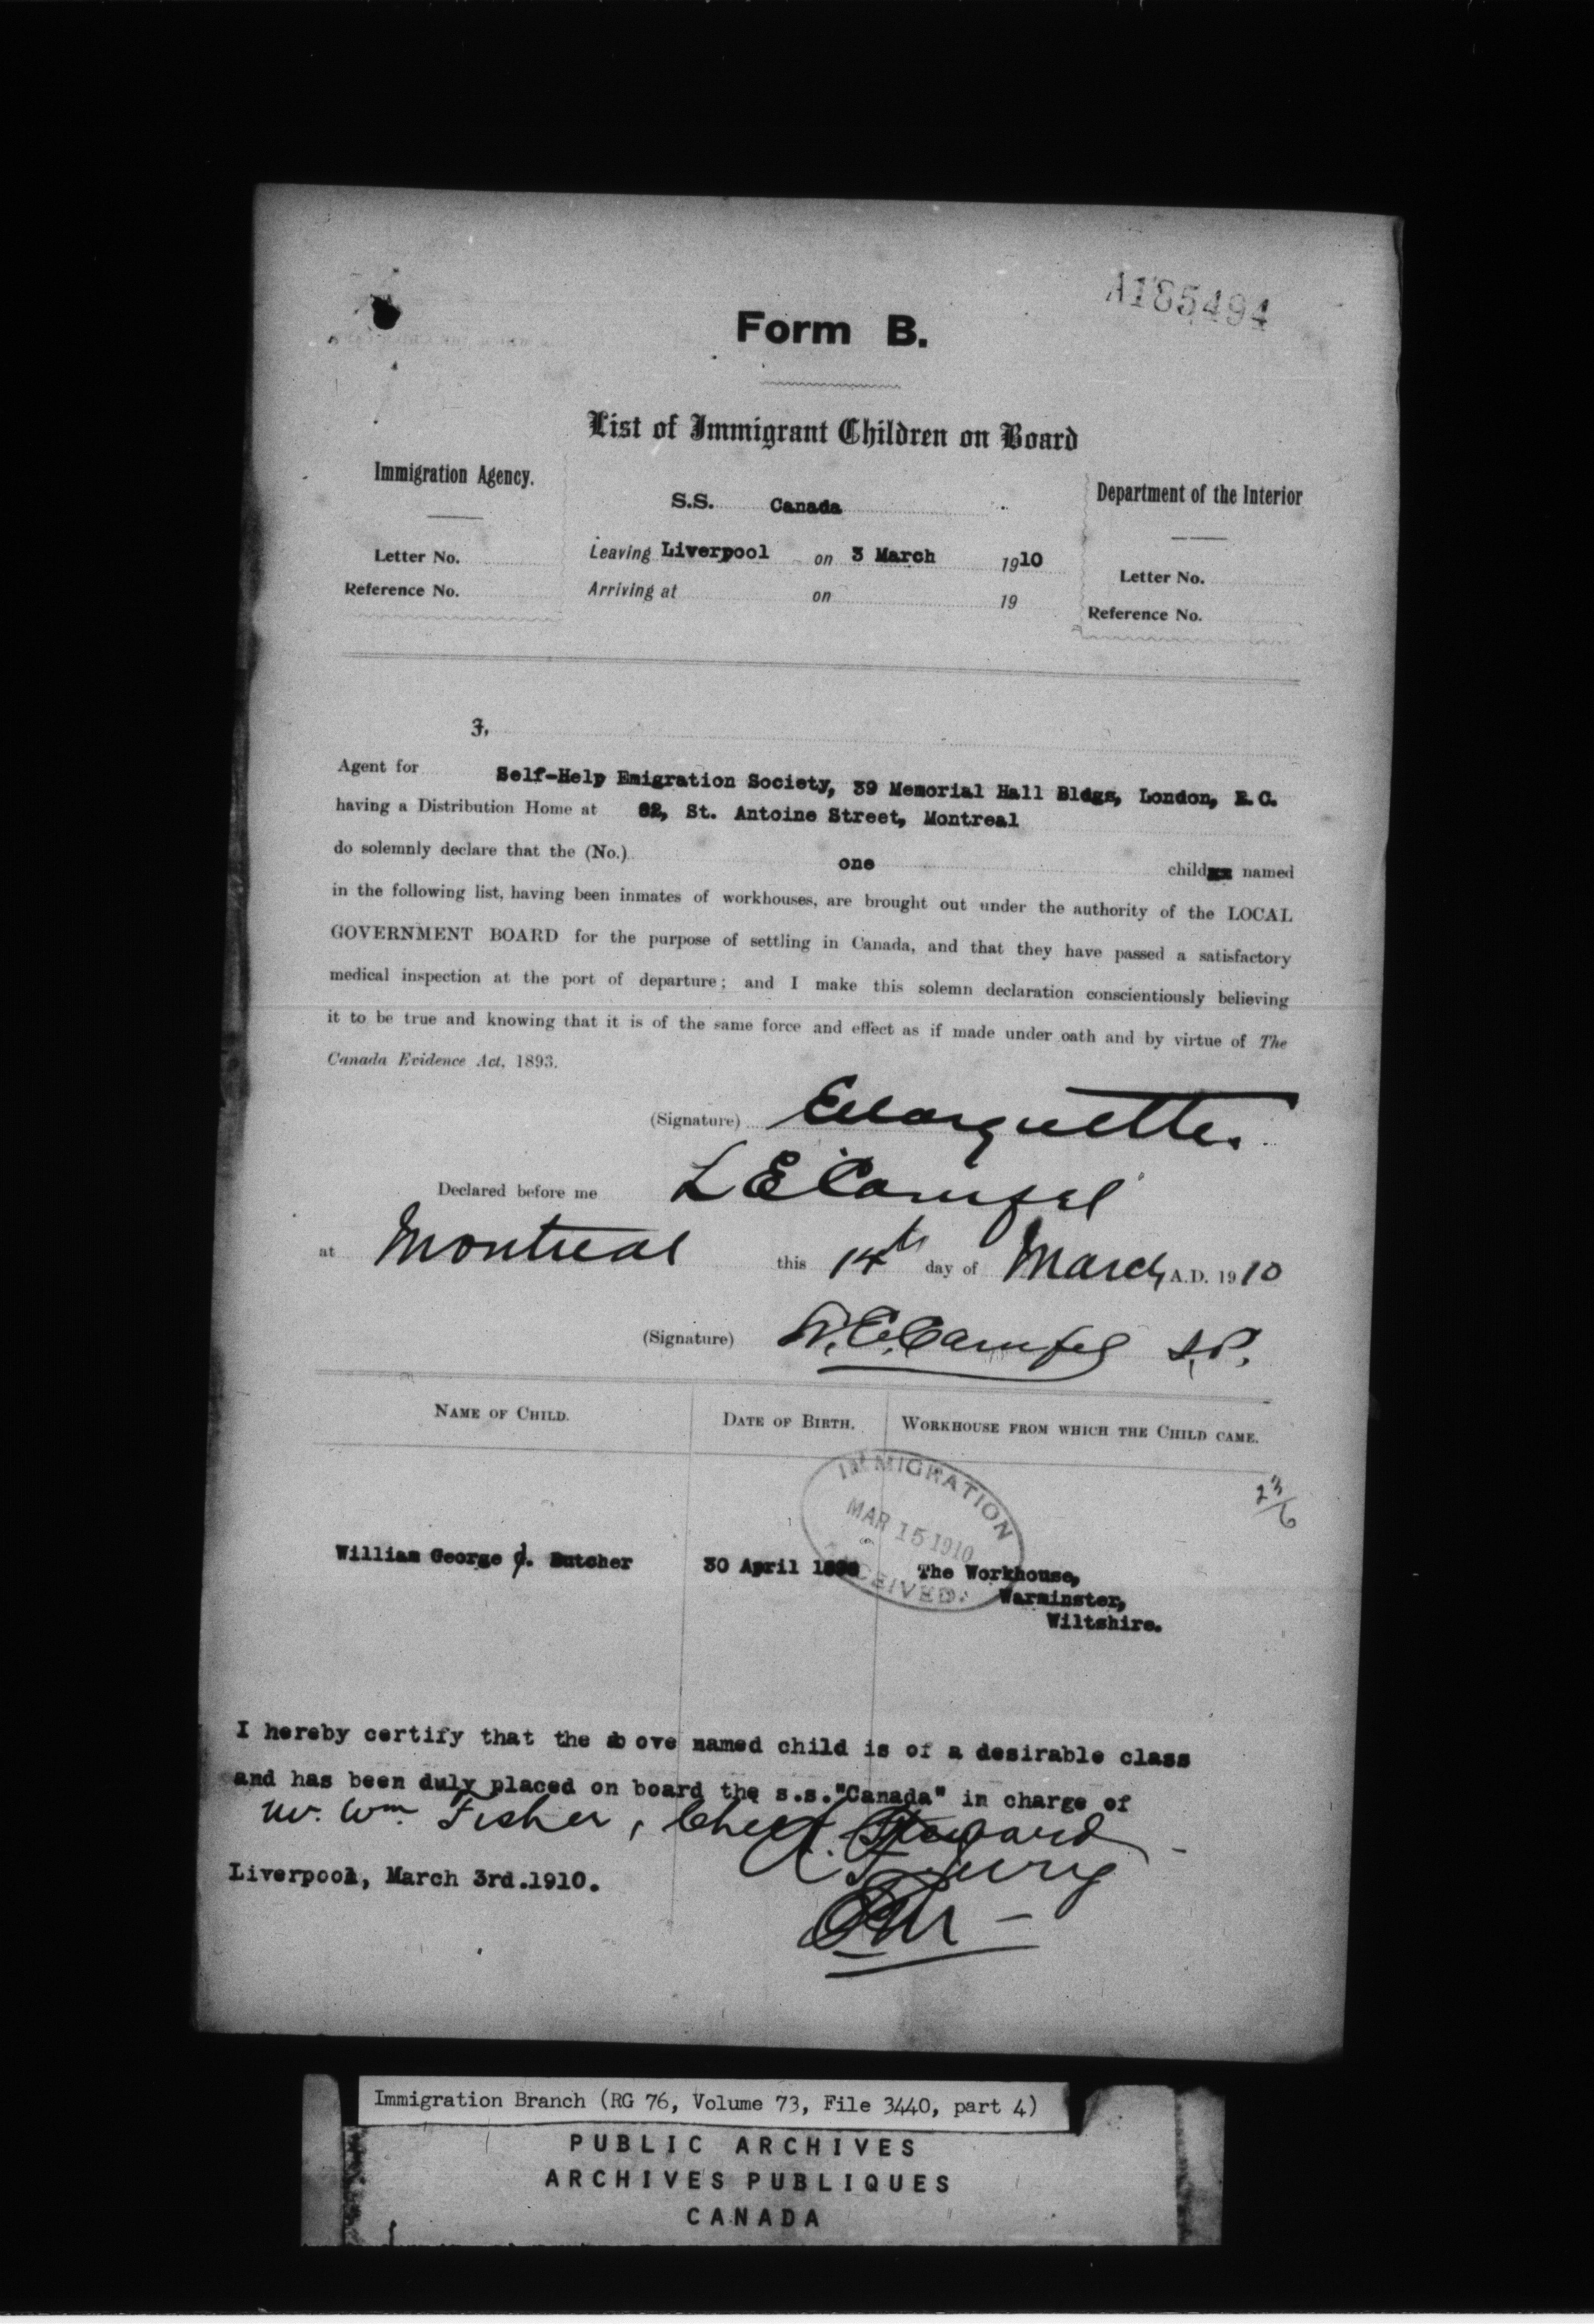 A185494
Form B.
List of Immigrant Children on Board
Immigration Agency.
Department of the Interior
S.S. Canada
Letter No.
Leaving Liverpool on 3 March 1910
Letter No.
Reference No.
Arriving at on 19
Reference No.
Agent for Self-Help Emigration Society, 39 Memorial Hall Bldgs, London, E.C.
having a Distribution Home at 82, St. Antoine Street, Montreal
do solemnly declare that the (No.) one child named
in the following list, having been inmates of workhouses, are brought out under the authority of the LOCAL
GOVERNMENT BOARD for the purpose of settling in Canada, and that they have passed a satisfactory
medical inspection at the port of departure; and I make this solemn declaration conscientiously believing
it to be true and knowing that it is of the same force and effect as if made under oath and by virtue of The
Canada Evidence Act, 1893.
(Signature) E Marquette.
Declared before me
at Montreal this 14th day of March A.D. 1910
(Signature) J.P.
NAME OF CHILD. DATE OF BIRTH. WORKHOUSE FROM WHICH THE CHILD CAME.
IMMIGRATION
MAR 15 1910
RECEIVED.
William George Butcher 30 April The Workhouse,
Warminster,
Wiltshire.
I hereby certify that the ab ove named child is of a desirable class
and has been duly placed on board the s.s."Canada" in charge of
Mr. Wm. Fisher, Chief Steward
Liverpool, March 3rd.1910.
Immigration Branch (RG 76, Volume 73, File 3440, part 4)
PUBLIC ARCHIVES
ARCHIVES PUBLIQUES
CANADA